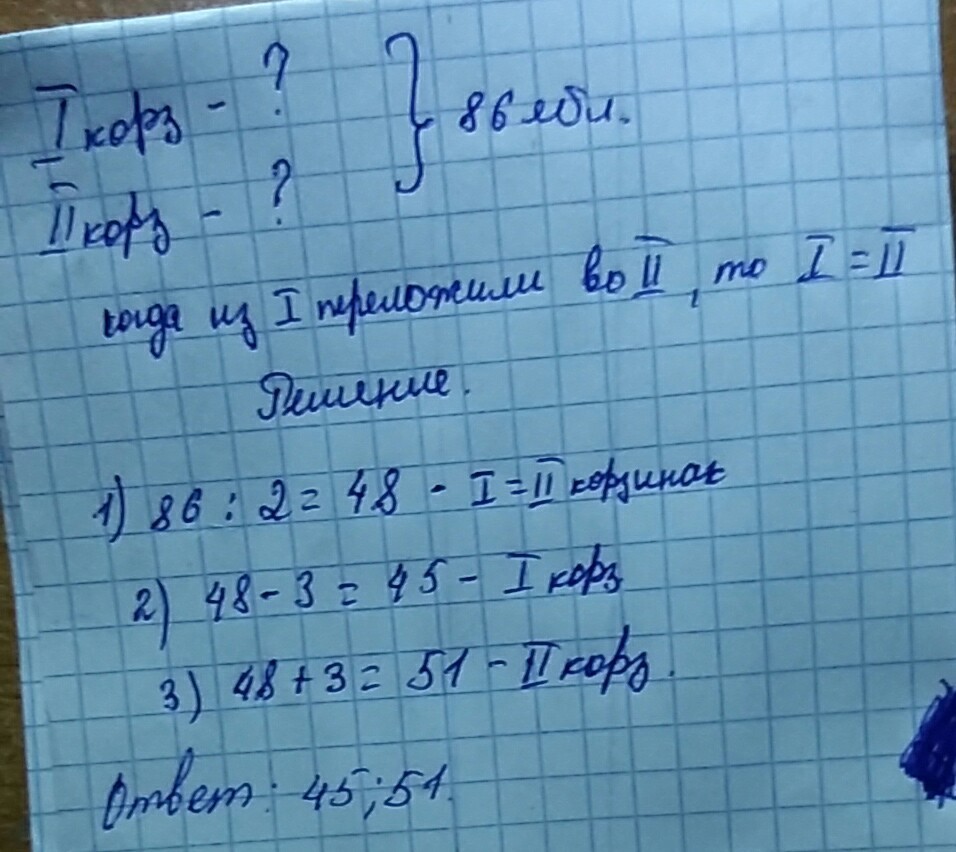 I корз - ? } 86 ябл.
II корз - ?
когда из I переложили во II, то I = II
Решение.
1) 86 : 2 = 48 - I = II корзинах
2) 48 - 3 = 45 - I корз
3) 48 + 3 = 51 - II корз.
Ответ: 45; 51.